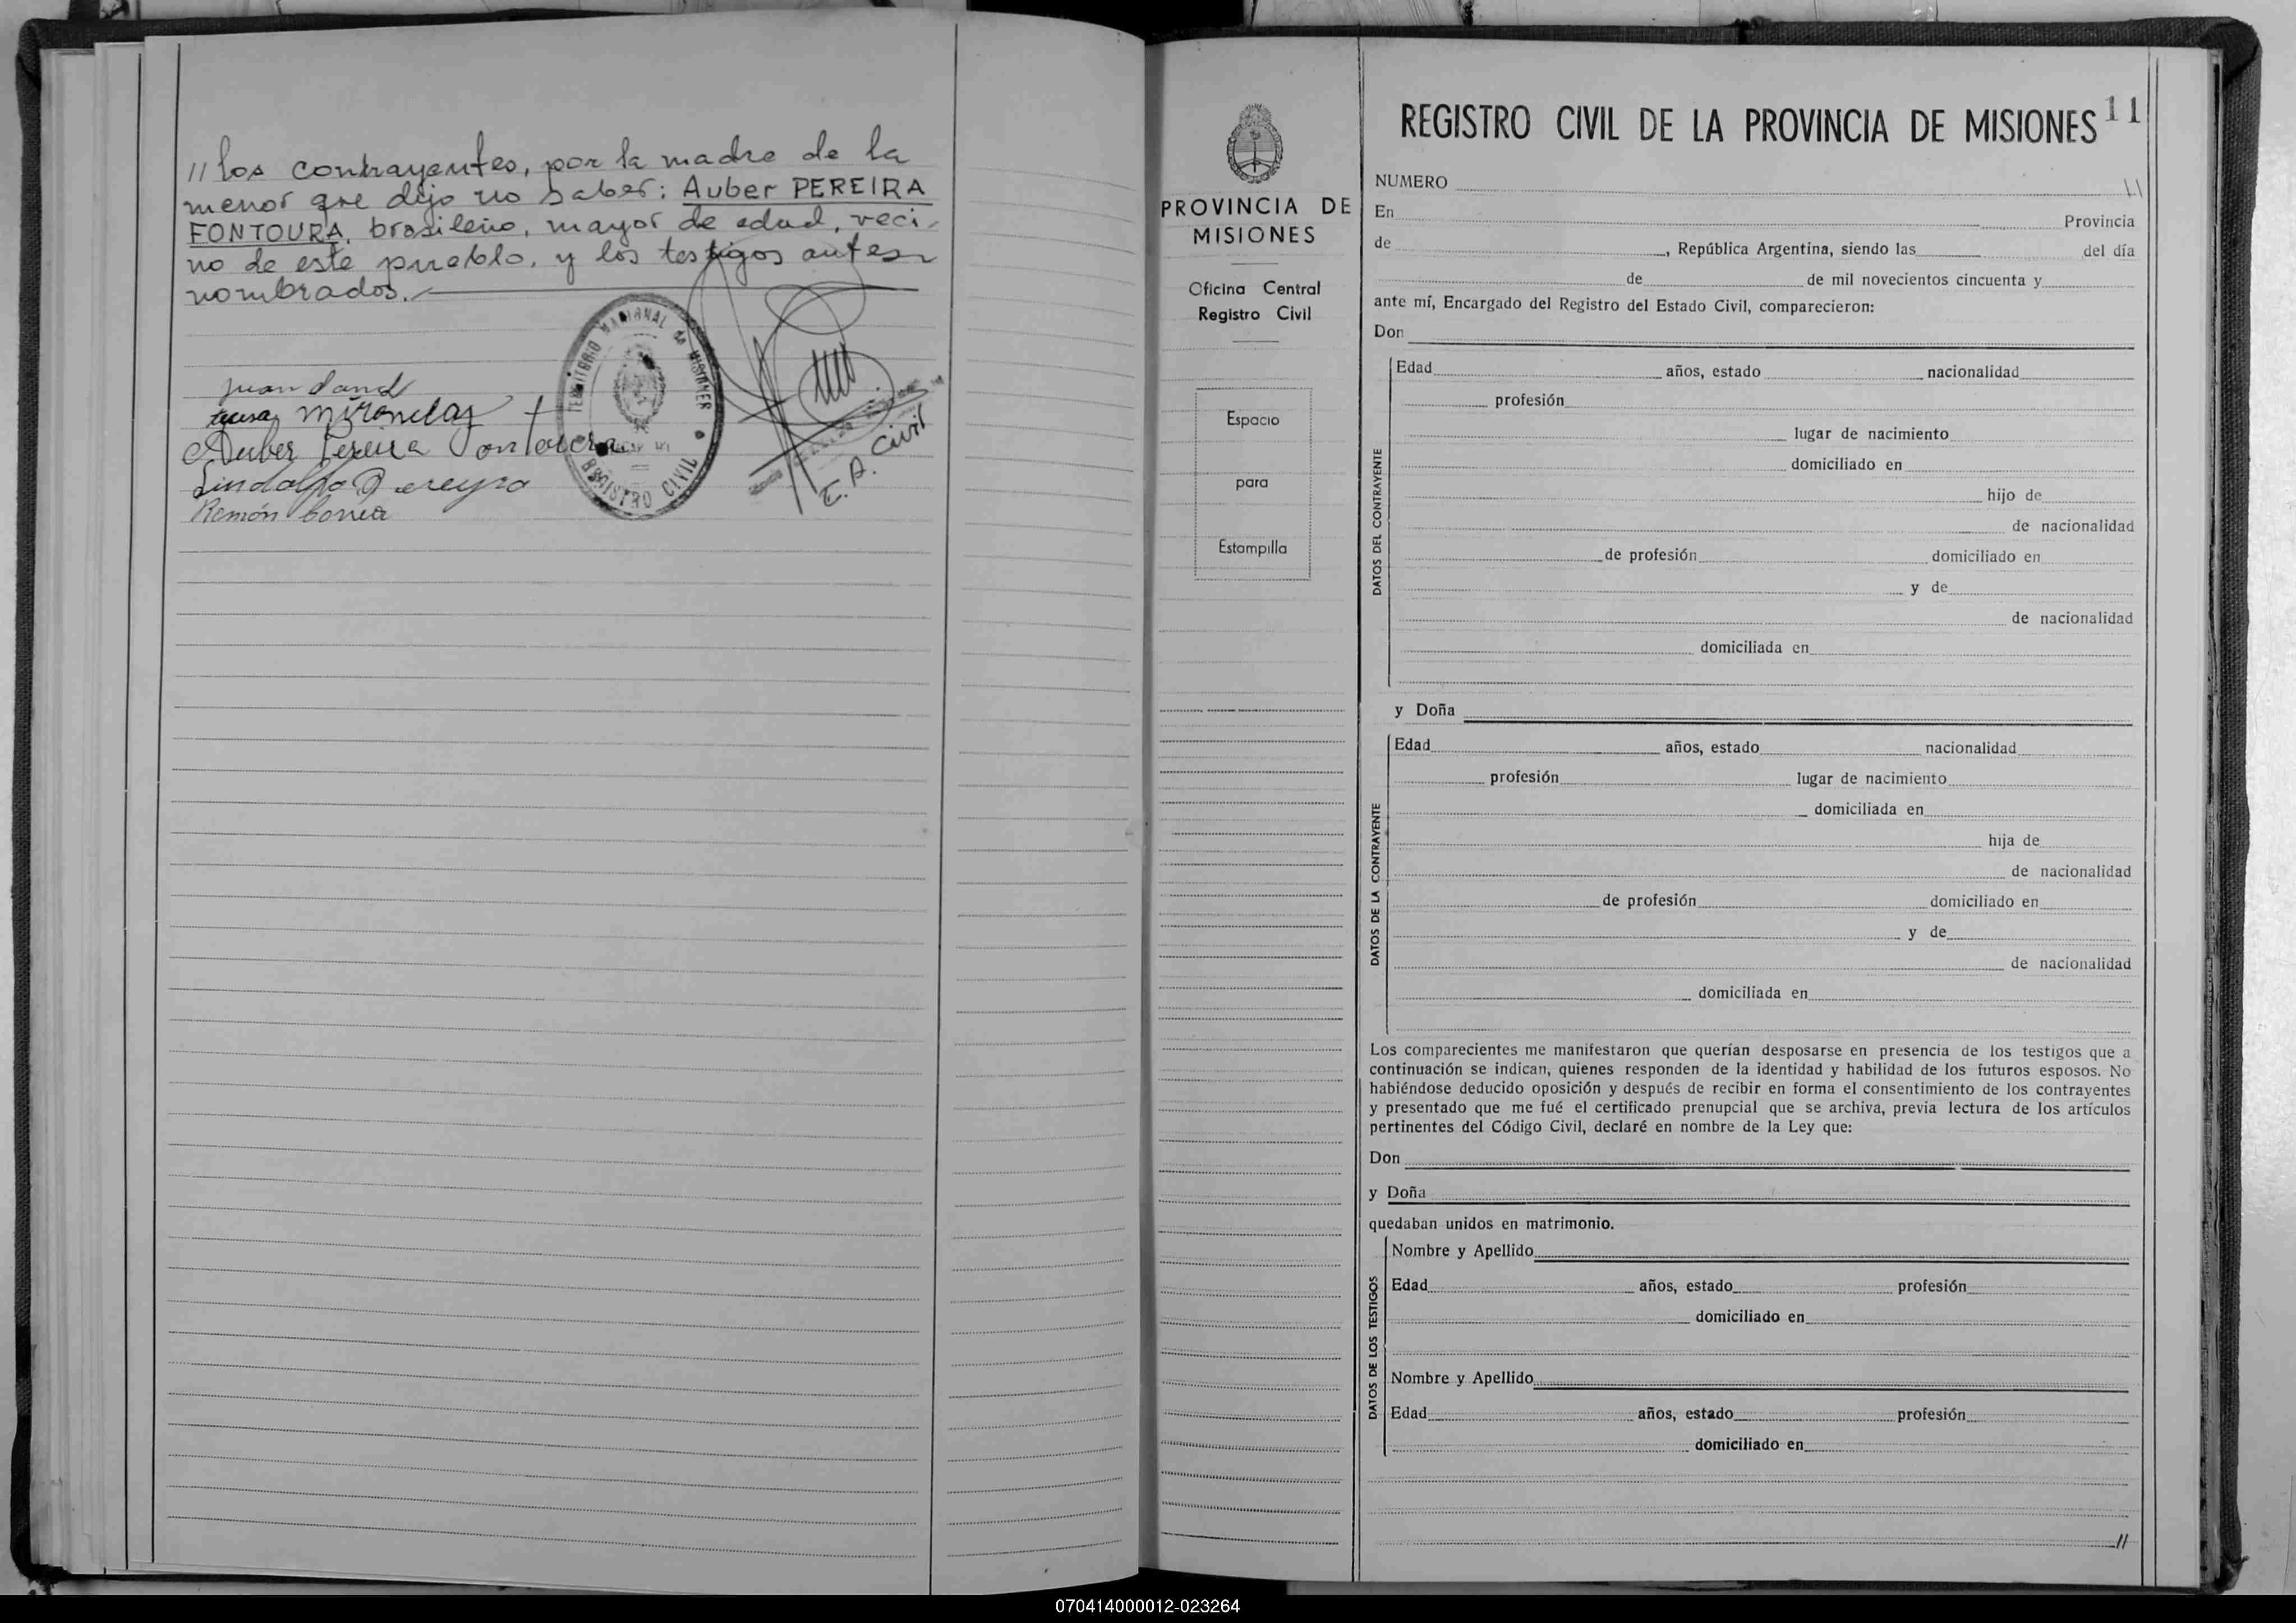 // los contrayentes, por la madre de la
menor que dijo no saber: Auber PEREIRA
FONTOURA, brasileño, mayor de edad, veci-
no de este pueblo, y los testigos antes
nombrados.
Juan
Auber Pereira Fontoura
Lindolfo Pereyra
Ramón Correa
TERRITORIO NACIONAL DE MISIONES
REGISTRO CIVIL
E. R. Civil
PROVINCIA DE
MISIONES
Oficina Central
Registro Civil
Espacio
para
Estampilla
REGISTRO CIVIL DE LA PROVINCIA DE MISIONES 11
NUMERO \\
En Provincia
de , República Argentina, siendo las del día
de de mil novecientos cincuenta y
ante mí, Encargado del Registro del Estado Civil, comparecieron:
Don
DATOS DEL CONTRAYENTE
Edad años, estado nacionalidad
profesión
lugar de nacimiento
domiciliado en
hijo de
de nacionalidad
de profesión domiciliado en
y de
de nacionalidad
domiciliada en
y Doña
DATOS DE LA CONTRAYENTE
Edad años, estado nacionalidad
profesión lugar de nacimiento
domiciliada en
hija de
de nacionalidad
de profesión domiciliado en
y de
de nacionalidad
domiciliada en
Los comparecientes me manifestaron que querían desposarse en presencia de los testigos que a
continuación se indican, quienes responden de la identidad y habilidad de los futuros esposos. No
habiéndose deducido oposición y después de recibir en forma el consentimiento de los contrayentes
y presentado que me fué el certificado prenupcial que se archiva, previa lectura de los artículos
pertinentes del Código Civil, declaré en nombre de la Ley que:
Don
y Doña
quedaban unidos en matrimonio.
DATOS DE LOS TESTIGOS
Nombre y Apellido
Edad años, estado profesión
domiciliado en
Nombre y Apellido
Edad años, estado profesión
domiciliado en
//
070414000012-023264